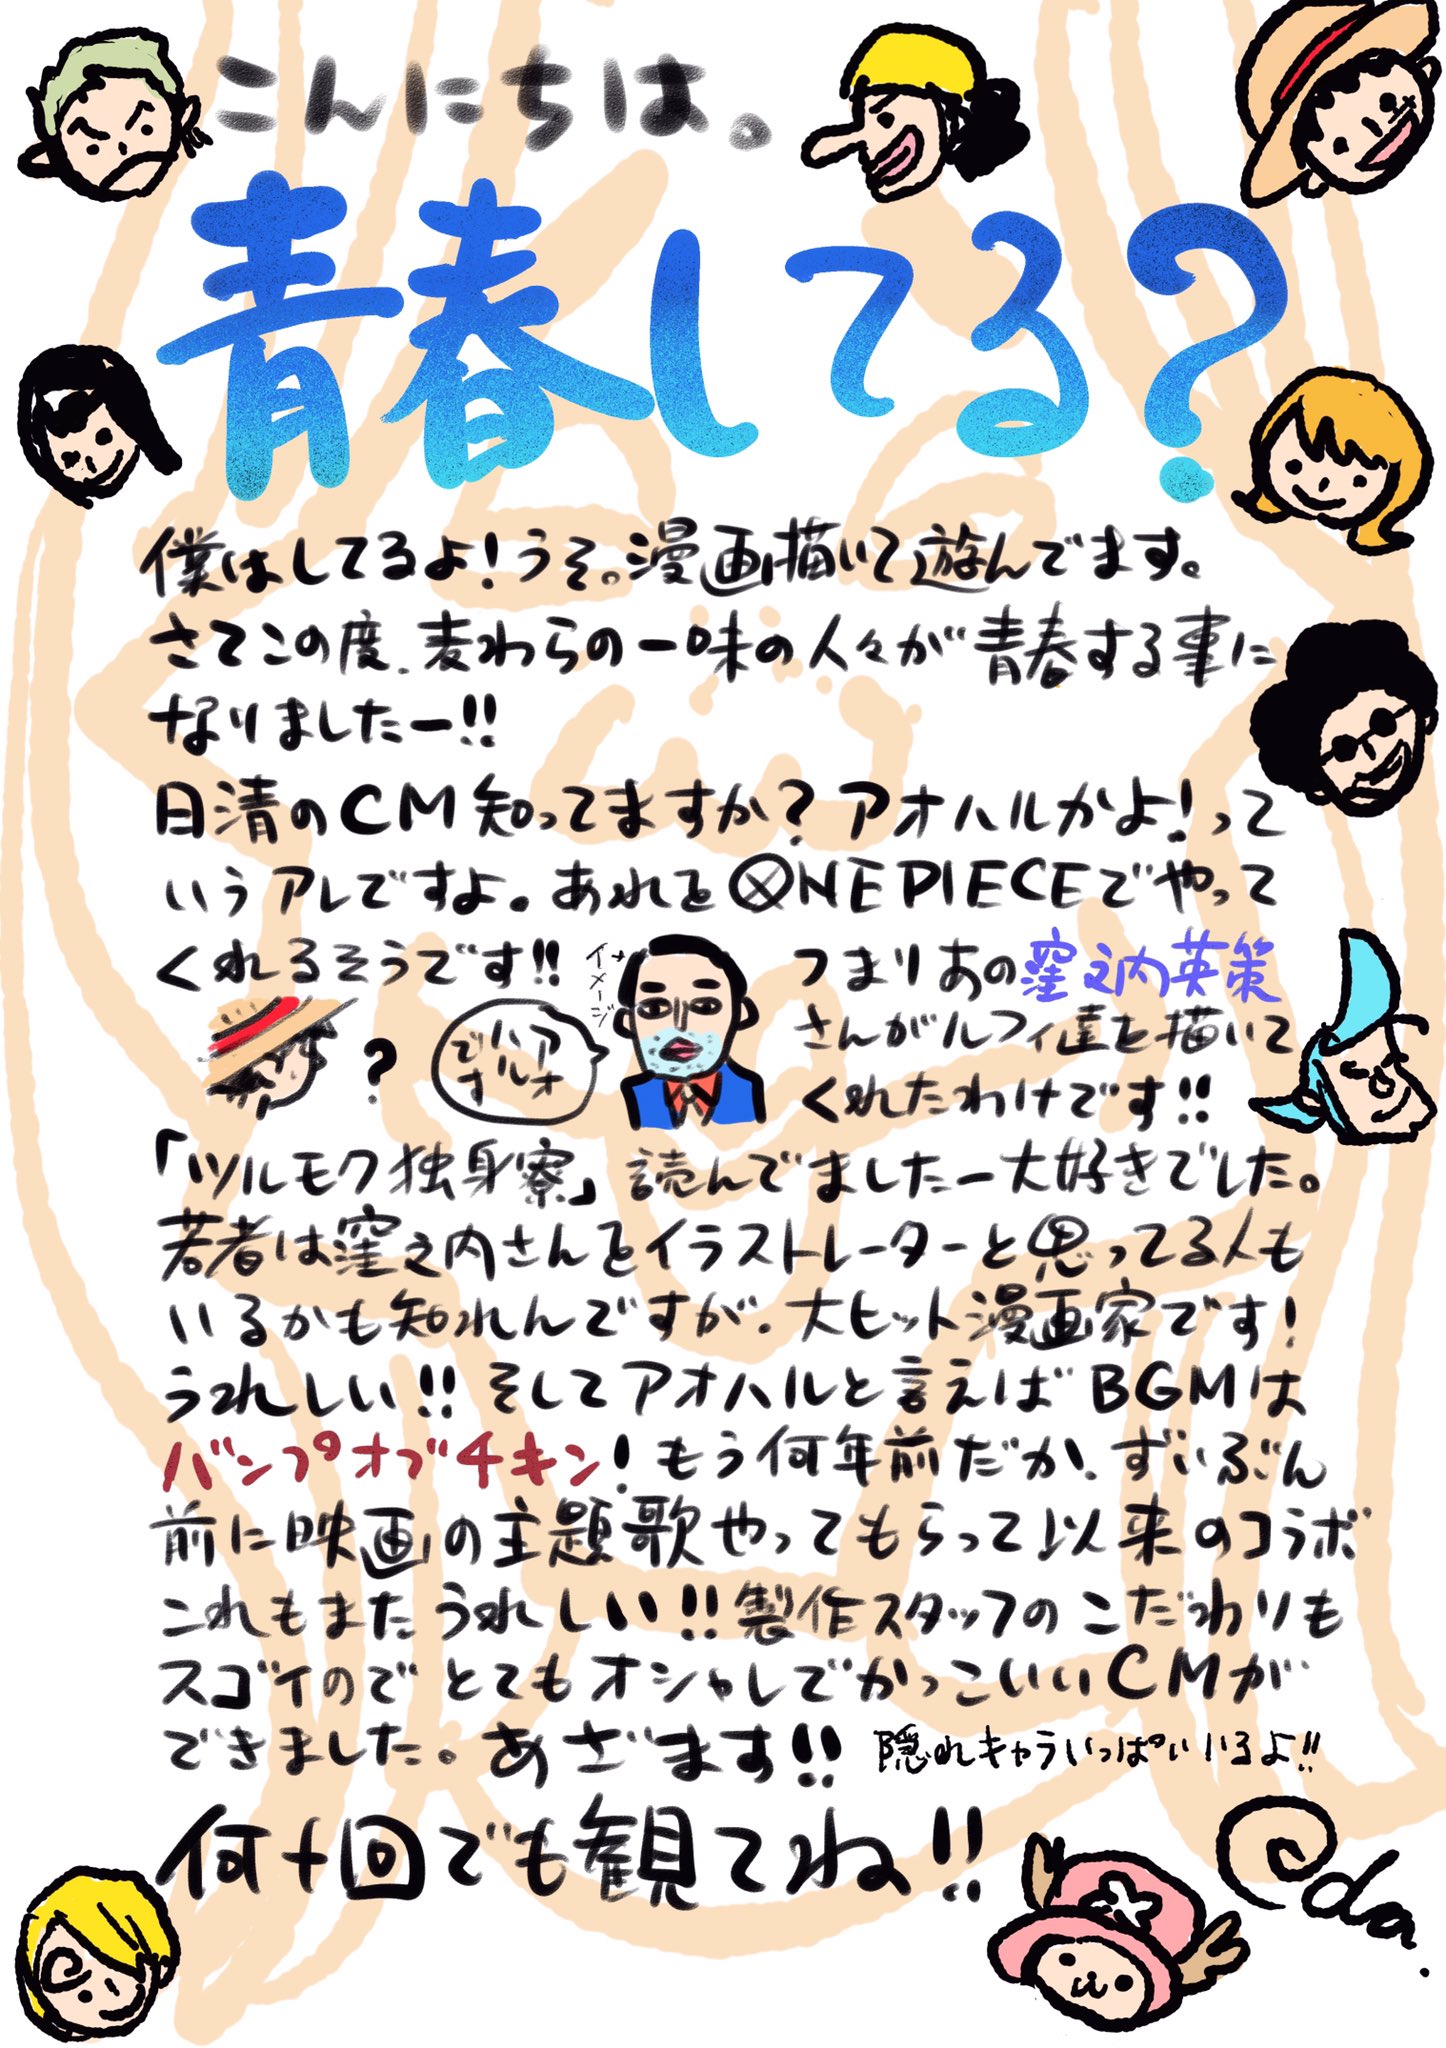 こんにちは。
青春してる?
僕はしてるよ!うそ。漫画描いて遊んでます。
さてこの度、麦わらの一味の人々が青春する事に
なりましたー!!
日清のCM知ってますか?アオハルかよ!って
いうアレですよ。あれをONE PIECEでやって
くれるそうです!!
イメージ
?
アオ
ハル
です
つまりあの窪之内英策
さんがルフィ達を描いて
くれたわけです!!
「ツルモク独身寮」読んでましたー大好きでした。
若者は窪之内さんをイラストレーターと思ってる人も
いるかも知れんですが、大ヒット漫画家です!
うれしい!!そしてアオハルと言えばBGMは
バンプオブチキン!もう何年前だか、ずいぶん
前に映画の主題歌やってもらって以来のコラボ
これもまたうれしい!!製作スタッフのこだわりも
スゴイのでとてもオシャレでかっこいいCMが
できました。あざます!!隠れキャラいっぱいいるよ!!
何十回でも観てね!!
Oda.